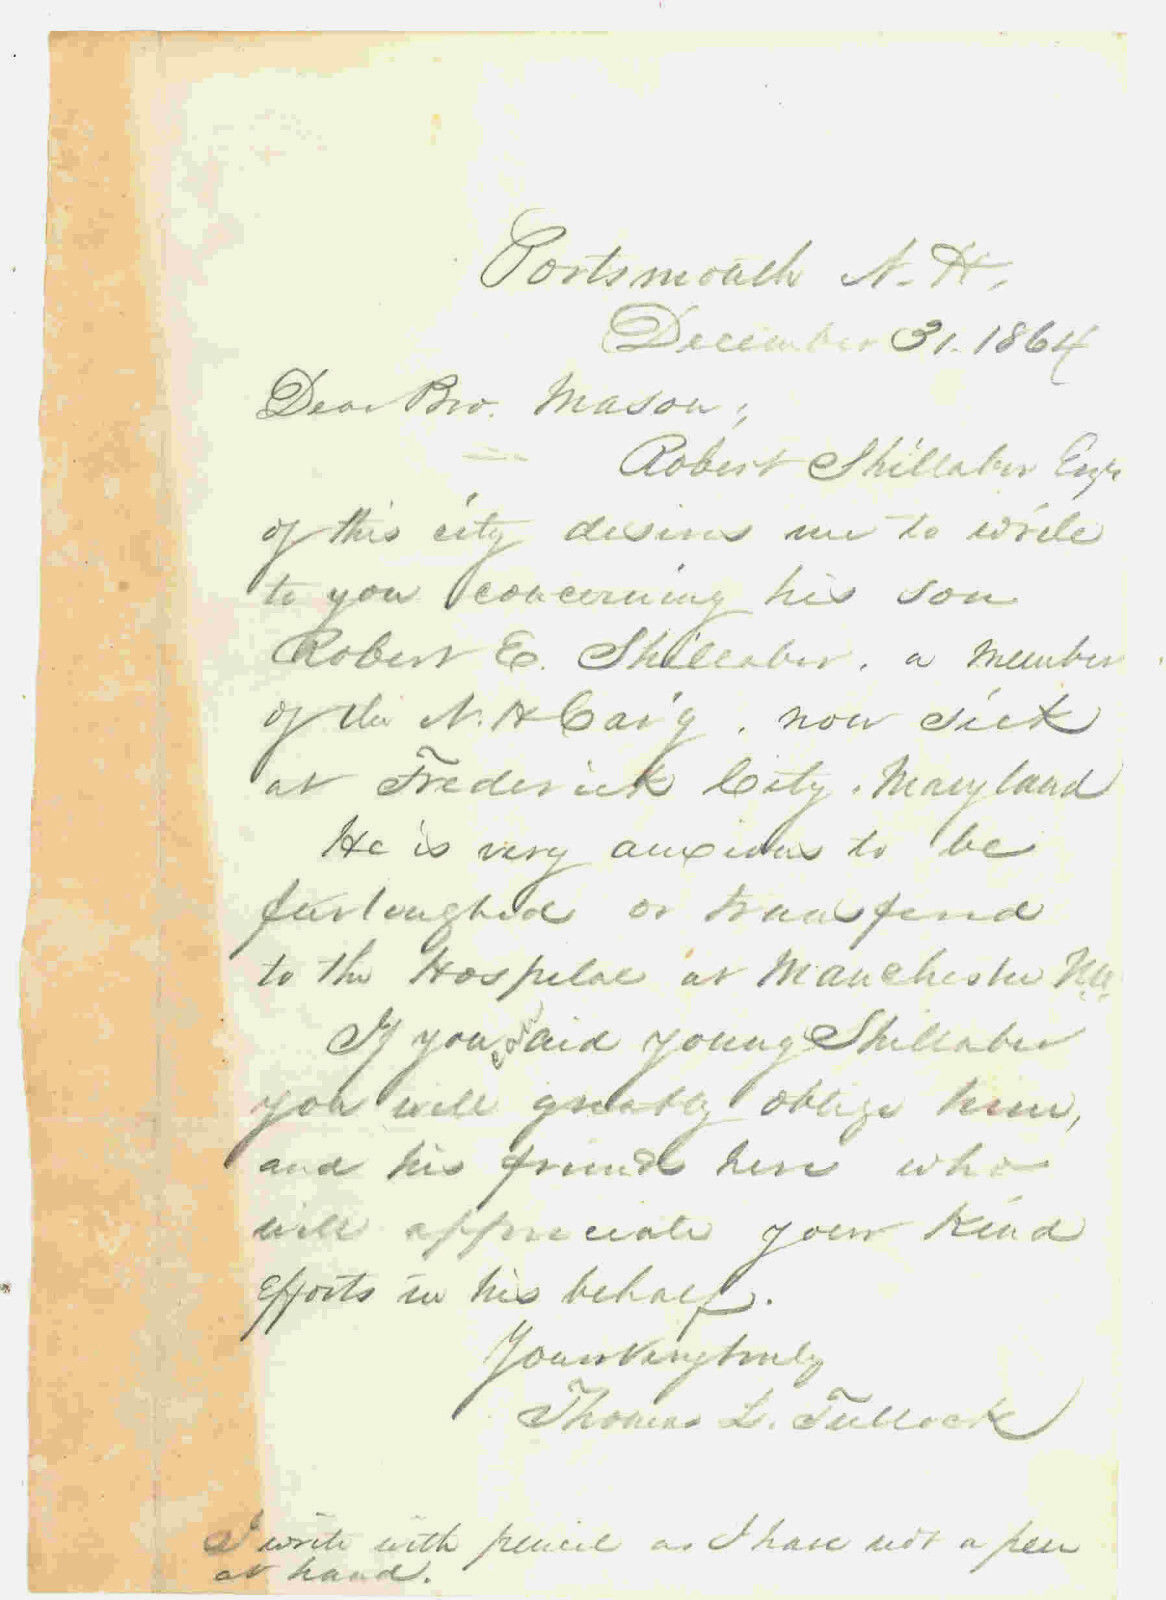 Portsmouth N. H,
December 31. 1864
Dear Bro. Mason;
Robert Shillaber Esqr
of this city desires me to write
to you concerning his son
Robert E. Shillaber, a member
of the N. H Cav'y, now sick
at Frederick City, Maryland
He is very anxious to be
furloughed or transferred
to the Hospital at Manchester N.H.
If you can aid young Shillaber
you will greatly oblige him,
and his friends here who
will appreciate your kind
efforts in his behalf.
Yours very truly
Thomas L. Tullock
I write with pencil as I have not a pen
at hand.